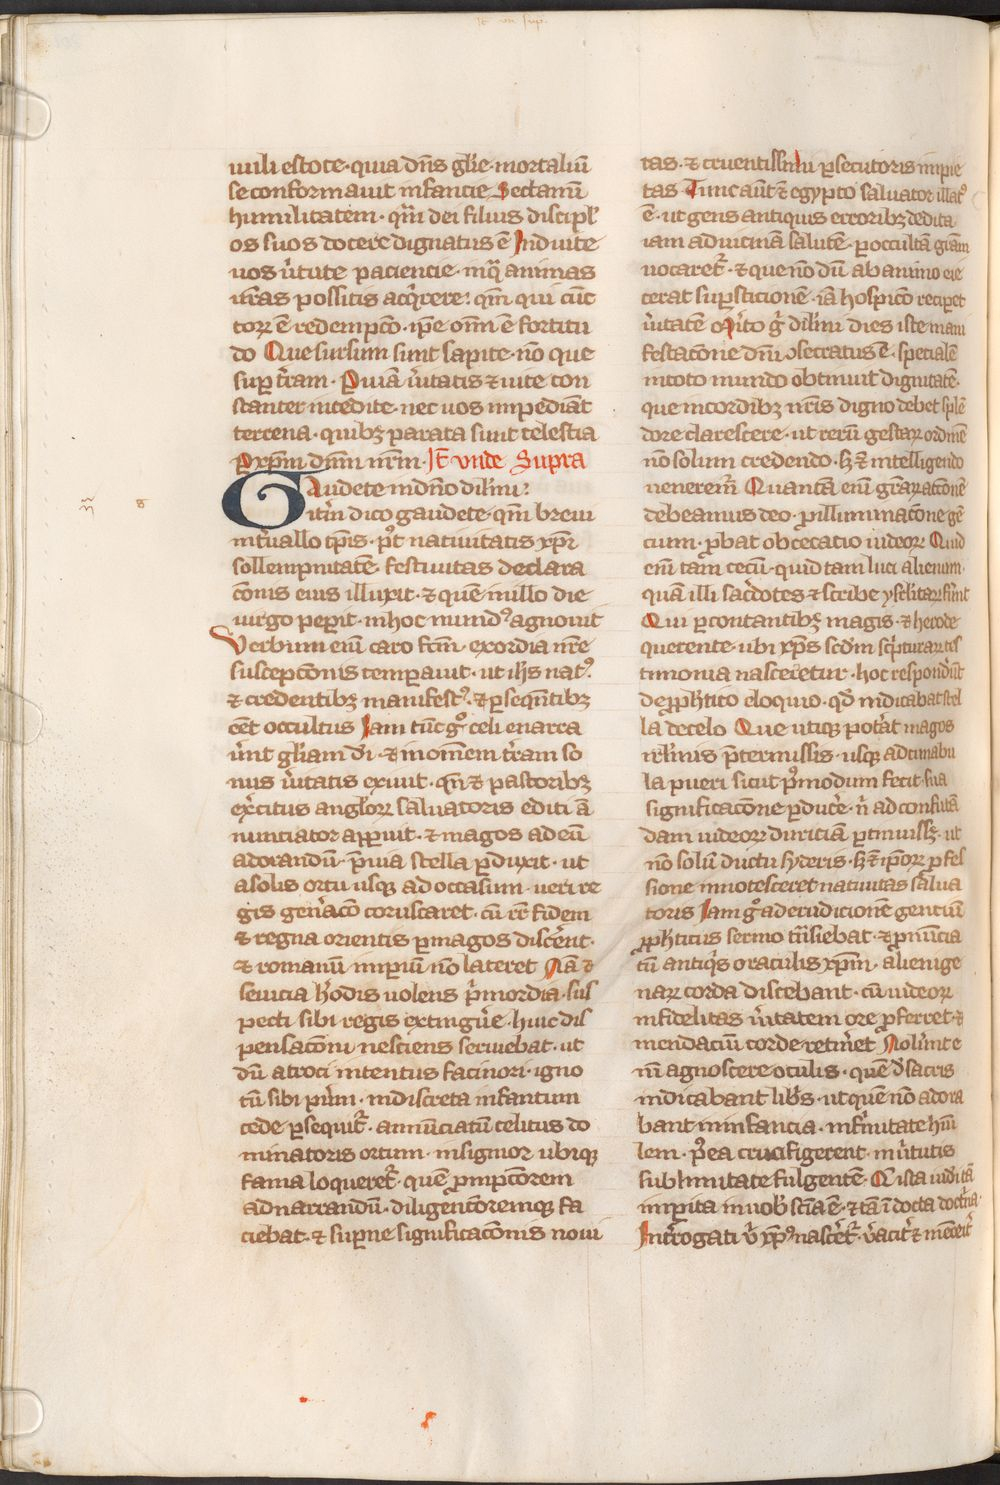 It vn sup.
uuli estote · quia dn̄s glīe · mortaliū
se conformauit infancie Sectamī
humilitatem · qm̄ dei filius discipl'
os suos docere dignatus ē Induite
uos ũtute paciencie · inq̄ animas
ur̄as possitis acq̄rere: qm̄ qui cūc
torꝝ ē redempcō · ip̄e om̄ ē fortitu
do Que sursum sunt sapite · nō que
suꝑ t̄ram · Ꝑ uiā ũitatis ⁊ uite con
stanter incedite · nec uos impediāt
terrena · quibꝫ parata sunt celestia
Ꝑ xp̄m dn̄m nr̄m · It̄ vnde Supra
Gaudete in dn̄o dil'mi:
it̄m dico gaudete · qm̄ breui
int̄uallo tp̄is · p̄t natiuitatis xp̄i
sollempnitatē festiuitas declara
cōnis eius illuxit · ⁊ quē in illo die
uirgo peꝑit · in hoc mundꝰ agnouit
Verbum eni̅ caro fcm̄ · exordia nr̄e
suscepcōnis temꝑauit · ut ih̄s natꝰ
⁊ credentibꝫ manifestꝰ · ⁊ ꝑseqn̄tibꝫ
eēt occultus Iam tūc gͦ celi enarra
ũnt gl̄iam dī · ⁊ in omnem t̄ram so
nus ũitatis exiuit · qn̄ ⁊ pastoribꝫ
exc̄itus angl̄orꝝ saluatoris editi ā
nunciator apꝑuit · ⁊ magos ad eū
adorandū · p̄uia stella ꝑduxit · ut
a solis ortu usqꝫ ad occasum · ueri re
gis gen̄acō coruscaret · cū rr̄ fidem
⁊ regna orientis ꝑ magos disc̄ent ·
⁊ romanū imꝑiū nō lateret Nā ⁊
seuicia h̄odis uolens p̄mordia · sus
pecti sibi regis extingūe · huic dis
pensacōni nesciens seruiebat · ut
dū atroci intentus facinori · igno
tū sibi pūm · indiscreta infantum
cede ꝑsequit̄ · annūciatū celitus do
minatoris ortum · insignior ubiqꝫ
fama loqueret̄ · quē ꝓmpcōrem
ad narrandū · diligencōremqꝫ fa
ciebat · ⁊ suꝑne significacōnis noui
tas · ⁊ cruentissimi ꝑsecutoris impie
tas Tunc aūt ⁊ egypto saluator illatꝰ
ē · ut gens antiquis erroribꝫ dedita
iam ad uicinā salutē · ꝑ occultā grām
uocaret̄ · ⁊ que nō dū ab animo eie
cerat suꝑsticionē · iā hospicō reciꝑet
ũitatē Mīto gͦ dil'mi dies iste mani
festacōne dn̄i ꝯsecratus ē · specialē
in toto mundo obtinuit dignitatē ·
que in cordibꝫ nr̄is digno debet splē
dore clarescere · ut rerū gestarꝝ ordinē
nō solum credendo · sꝫ ⁊ intelligendo
uenerem̄ Quantā eni̅ gr̄arꝝ accōnē
debeamus deo · ꝓ illuminacōne gē
cium · ꝓbat obcecatio iudeorꝝ Quid
eni̅ tam cecū · quid tam luci alienum ·
quā illi sac̄dotes ⁊ scribe ysrl'itarꝝ fūnt
Qui ꝑcontantibꝫ magis · ⁊ herode
querente · ubi xp̄s scdm̄ sc̄pturarꝝ tes
timonia nasceretur · hoc respondūt
de ꝓph̄tico eloquio · qd̄ indicabat stel
la de celo Que utiqꝫ pot̄at magos
irl'imis p̄termissis · usqꝫ ad cunabu
la pueri sicut p̄modum fecit · sua
significacōne ꝑduc̄e · n̄ ad confutā
dam iudeorꝝ duriciā ꝑtinuissꝫ · ut
nō solū ductu syderis · sꝫ ⁊ ip̄orꝝ ꝓfes
sione innotesceret natiuitas salua
toris Iam gͦ ad erudicionē gentiū
ꝓph̄ticus sermo tn̄siebat · ⁊ ꝑnūcia
tū antiq̄s oraculis xp̄m · alienige
narꝝ corda discebant · cū iudeorꝝ
infidelitas ũitatem ore ꝓferret · ⁊
mendaciū corde retin̄et Nolūnt e
nī agnoscere oculis · quē d̄ sacris
indicabant libr̄is · ut quē nō adora
bant in infancia · infr̄mitate hūi
lem · p̄ea crucifigerent · in ũtutis
sublimitate fulgentē · Q ista iudei tā
imꝑita in uob' scīa ē · ⁊ tā īdocta doct̄na ·
Int̄rogati ũ xp̄ꝰ nascet̄ · ũacit̄ ⁊ mēoīt̄